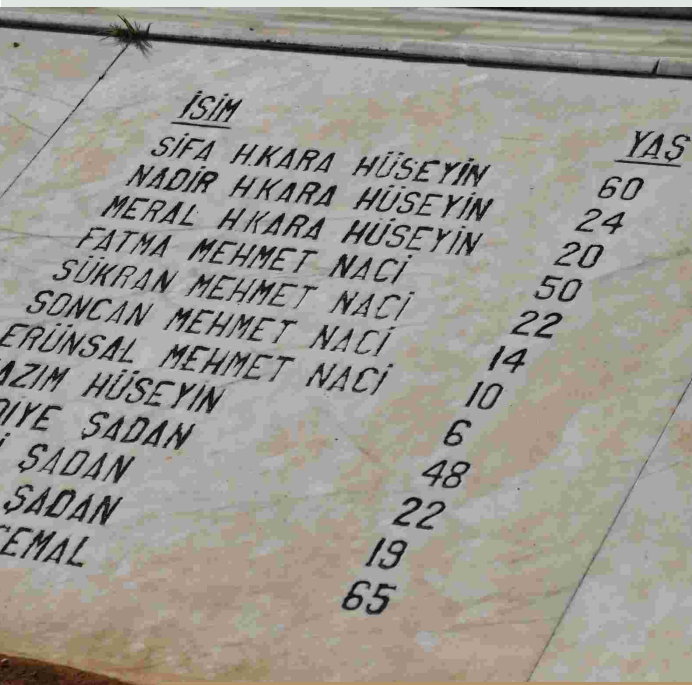 İSİM YAŞ
SİFA H.KARA HÜSEYİN 60
NADİR H.KARA HÜSEYİN 24
MERAL H.KARA HÜSEYİN 20
FATMA MEHMET NACİ 50
SÜKRAN MEHMET NACİ 22
SONCAN MEHMET NACİ 14
ERÜNSAL MEHMET NACİ 10
AZIM HÜSEYİN 6
DİYE ŞADAN 48
ŞADAN 22
ŞADAN 19
CEMAL 65